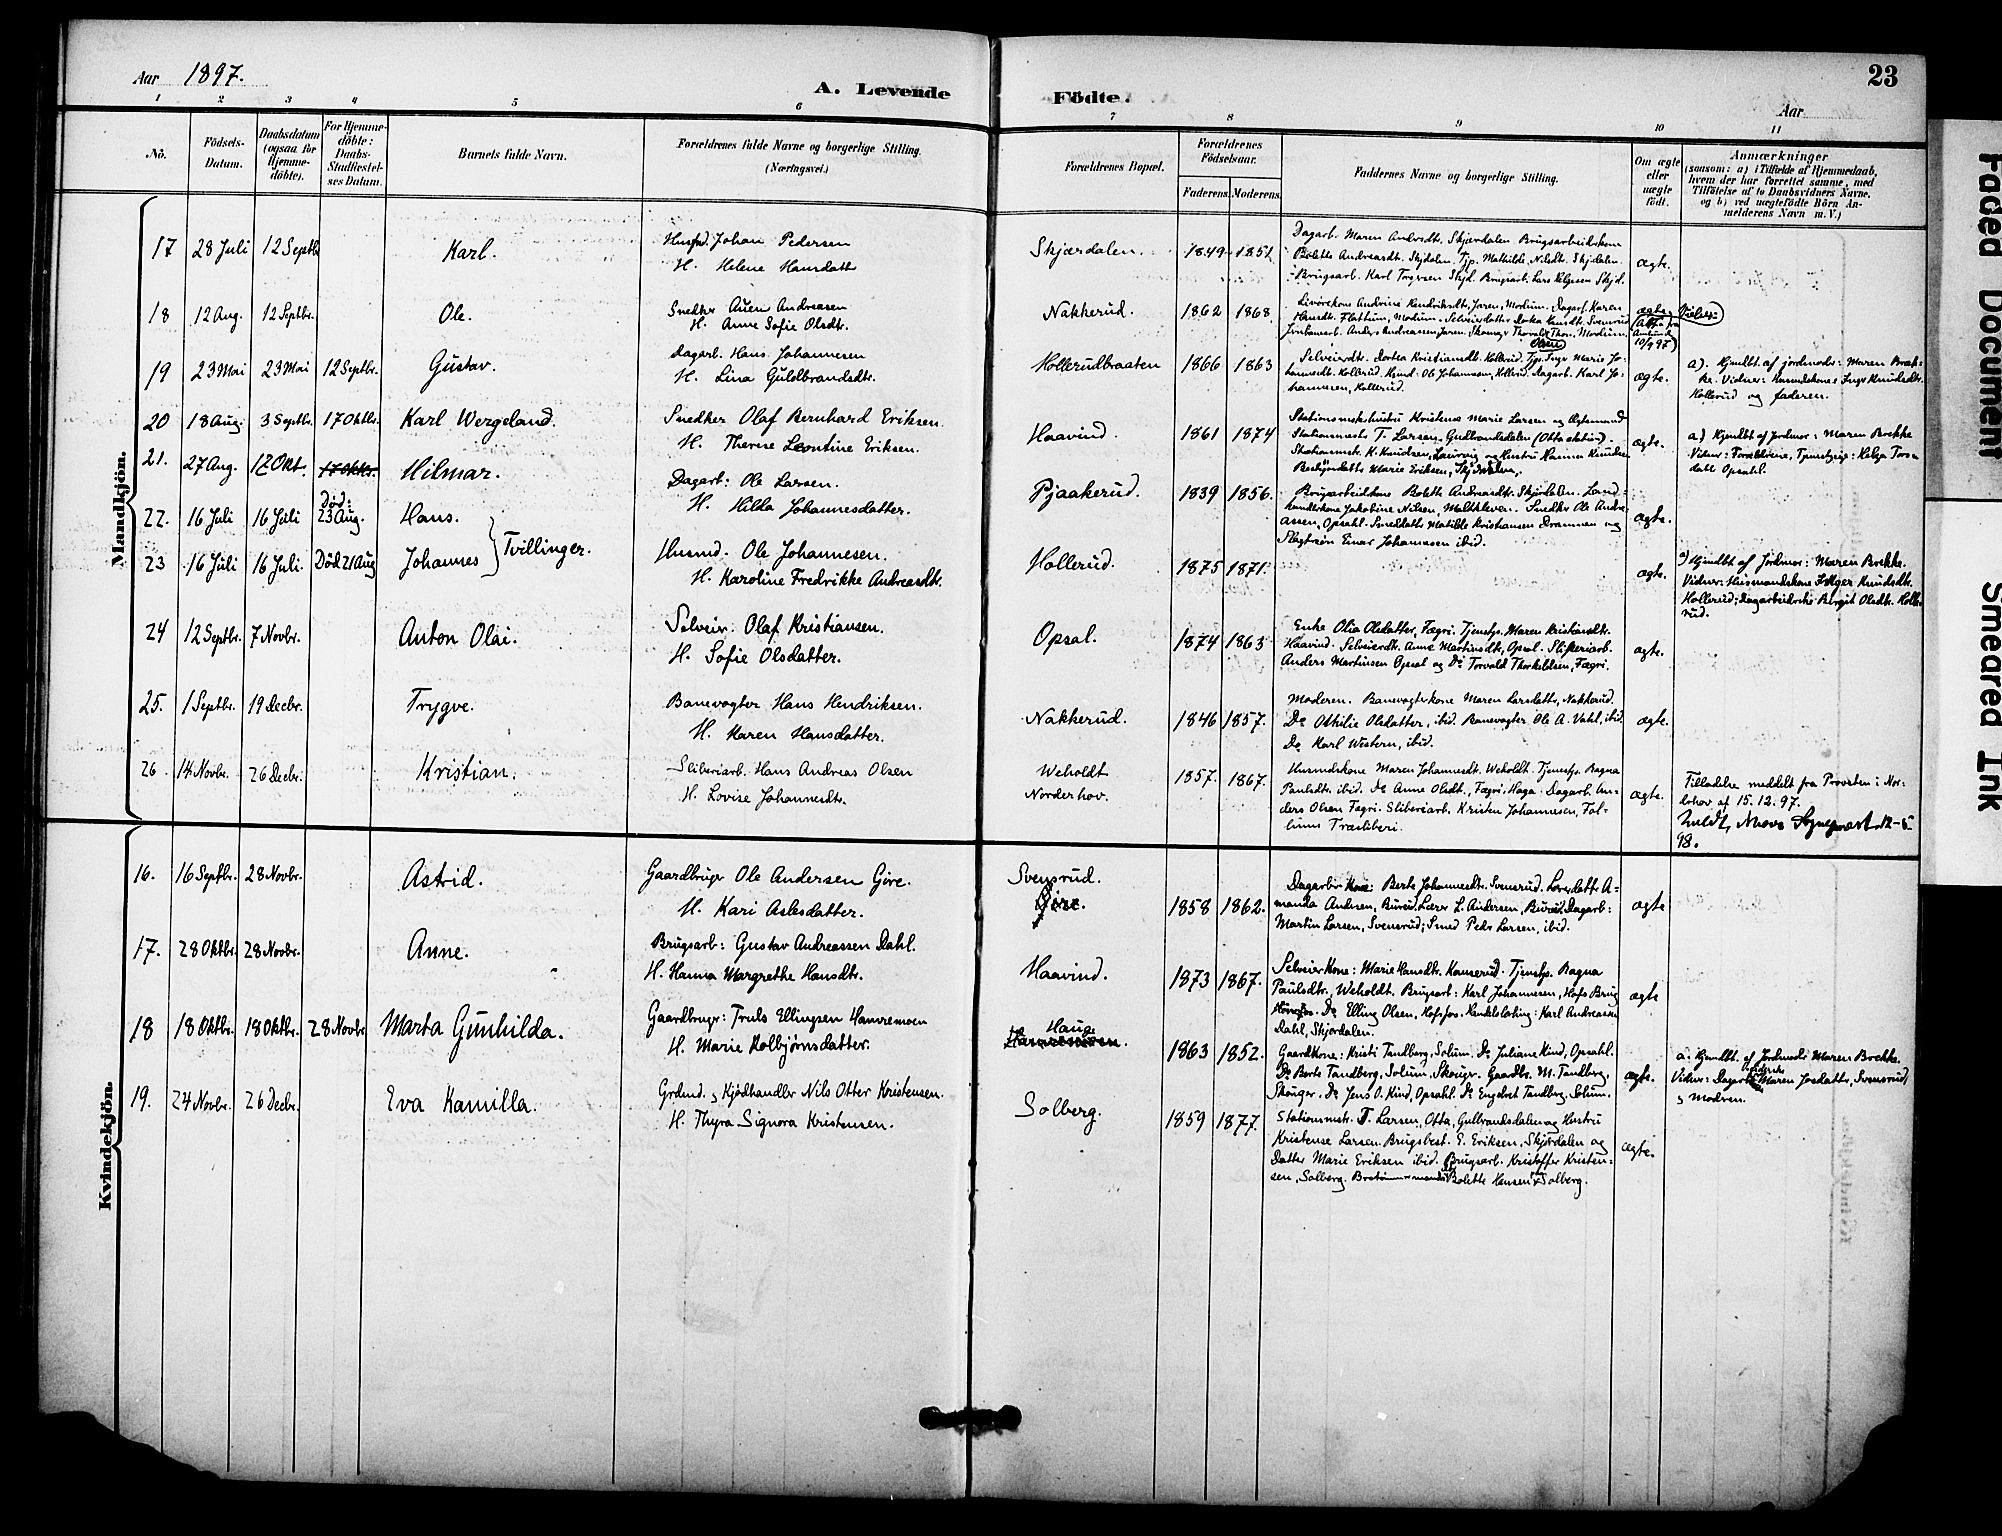 Aar 1897.
A. Levende Födte.
Aar
23
1 2 3 4 5 6 7 8 9 10 11
No.
Födsels-Datum.
Daabsdatum (ogsaa for Hjemme-döbte).
For Hjemme-döbte: Daabs-Stadfæstel-ses Datum.
Barnets fulde Navn.
Forældrenes fulde Navne og borgerlige Stilling. (Næringsvei.)
Forældrenes Bopæl.
Forældrenes Födselsaar.
Faderens. Moderens.
Faddernes Navne og borgerlige Stilling.
Om ægte eller uægte födt.
Anmærkninger
(saasom: a) i Tilfælde af Hjemmedaab, hvem der har forrettet samme, med Tilföielse af to Daabsvidners Navne, og b) ved uægtefödte Börn An-melderens Navn m. V.)
Mandkjön.
17 28 Juli 12 Septb. Karl.
Husmd. Johan Pedersen
H. Helene Hansdatt
Skjærdalen. 1849 1851
Dagarb. Maren Andrsdt. Skjærdalen. Brugsarbeiderkone
Bolette Andreasdt. Skjdalen. Tjp. Mathilde Nilsdt. Skjdalen.
Brugsarb. Karl Torgersen Skjd. Brugsarb. Lars Helgesen Skjd.
ægte.
18 12 Aug. 12 Septbr. Ole.
Snedker Auen Andreasen
H. Anne Sofie Olsdtr.
Nakkerud. 1862 1868
ægte.
19 23 Mai 23 Mai 12 Septbr. Gustav.
Dagarb. Hans Johannesen
H. Lina Guldbrandsdtr.
Hollerudbraaten 1866 1863
Selveierdt. Dortea Kristiansdt. Hollerud. Tjp. Inger Marie Jo-
hannesdt. Hollerud. Hsmd. Ole Johannesen, Hollerud. Dagarb. Karl Jo-
hannesen, Hollerud.
ægte.
a). Hjemdbt. af jordmoder: Maren Bræk-
ke. Vidner: Husmdskone Inger Knudsdt.
Hollerud og faderen.
20 18 Aug. 3 Septbr. 17 Oktbr. Karl Wergeland.
Snedker Olaf Bernhard Eriksen
H. Therese Leontine Eriksen.
Haavind. 1861 1874
Stationsmesterhustru Kristense Marie Larsen og Ægtemand
Stationsmester T. Larsen, Gudbrandsdalen (Otta station).
Stationsmstr. K. Knudsen, Laurvig og Hustru Hanna Knudsen
Marie Eriksen, Skjærdalen.
ægte.
a) Hjemdbt. af Jordmor: Maren Brekke
Vidner: Forældrene, Tjenestpige: Helga Tors-
datt Opsahl.
21. 27 Aug. 17 Okt. 17 Oktbr. Hilmar.
Dagarb: Ole Larsen.
H. Hilda Johannesdatter.
Pjaakerud. 1839 1856.
Brugsarbeiderkone Bolette Andreasdt. Skjærdalen. Land-
handlerkone Jakobine Nilsen, Møltkleven. Snedker Ole Andre-
assen, Opsahl. Sneddatter Matilde Kristiansen Drammen og
Plagtrson Einar Johannesen ibid.
ægte.
22. 16 Juli 16 Juli Död: 23 Aug. Hans.
23 16 Juli 16 Juli. Död 21 Aug Johannes
Tvillinger.
Husmd. Ole Johannesen.
H. Karoline Fredrikke Andreasdt.
Hollerud. 1875 1871.
ægte.
a) Hjemdbt. af Jordmor: Maren Brekke.
Vidner: Husmandskone Inger Knudsdt.
Hollerud; Dagarbeiderske Birgit Olsdt. Holle-
rud.
24 12 Septbr. 7 Novbr. Anton Olai.
Selveier. Olaf Kristiansen.
H. Sofie Olsdatter.
Opsal. 1874 1863
Enke Olia Olsdatter, Fægri. Tjenstps. Maren Kristiansdtr.
Haavind. Selveierdt. Anne Martinsdt., Opsal. Sliperiarb.
Anders Martinsen Opsal og Do Torvald Thorkeldsen, Fægri.
ægte.
25. 1 Septbr. 19 Decbr. Trygve.
Banevogter Hans Hendriksen.
H. Karen Hansdatter.
Nakkerud. 1846 1857.
Moderen. Banevogterkone Maren Larsdatter, Nakkerud.
Do Othilie Olsdatter, ibid. Banevogter Ole A. Vahl, ibid.
Do Karl Western, ibid.
ægte.
26. 14 Novbr. 26 Decbr. Kristian.
Sliberiarb. Hans Andreas Olsen
H. Lovise Johannesdtr.
Weholdt Norderhov. 1857. 1867.
Husmdskone Maren Johannesdt. Weholdt. Tjenestps. Ragna
Paulsdtr. ibid. Do Anne Olsdt., Fægri. Haga. Dagarb. An-
ders Olsen Fægri. Sliberiarb. Kristen Johannesen, Fol-
lums Træsliberi.
ægte.
Tilladelse meddelt fra Provsten i Nor-
derhov af 15.12.97.
98.
Kvindekjön.
16. 16 Septbr. 28 Novbr. Astrid.
Gaardbruger Ole Andersen Gjøre.
H. Kari Aslesdatter.
Svensrud. 1858 1862.
Dagarbr Kone: Berte Johannesdt. Svensrud. Lærerdatter A-
manda Andersen, Bureid. Lærer L. Andersen, Bureid. Dagarb:
Martin Larsen, Svensrud; Smed Peder Larsen, ibid.
ægte
17. 28 Oktbr. 28 Novbr. Anne.
Brugsarb: Gustav Andreassen Dahl.
H. Hanna Margrethe Hansdtr.
Haavind. 1873 1867.
Selveierkone: Marie Hansdtr. Hanserud. Tjenestps. Ragna
Paulsdtr., Weholdt. Brugsarb: Karl Johannesen, Hofs Brug
Hønefos. Do Elling Olsen, Hofsfos. Handelsbetjng: Karl Andreassen
Dahl, Skjærdalen.
ægte
18 18 Oktbr. 18 Oktbr. 28 Novbr Marta Gunhilda.
Gaardbruger: Truls Ellingsen Hamremoen
H. Marie Kolbjørnsdatter.
Hauge
Hamremoen. 1863 1852.
Gaardkone: Kristi Tandberg, Solum. Do Juliane Kind, Opsahl.
Do Berte Tandberg, Solum, Skouger. Gaardbr. M. Tandberg,
Skouger. Do Jens O. Kind, Opsahl. Do Engebret Tandberg, Solum.
ægte.
a. Hjemdbt. af Jordmoder Maren Brekke.
Vidner: Dagarb Maren Josdatter, Svensrud,
og Modren.
19. 24 Novbr. 26 Decbr. Eva Kamilla.
Grdmd. og Kjødhandler Nils Otter Kristensen.
H. Thyra Signora Kristensen.
Solberg. 1859 1877.
Stationsmstr. T. Larsen, Otta, Gulbrandsdalen og Hustru
Kristense Larsen. Brugsbest. E. Eriksen, Skjærdalen og
Datter Marie Eriksen ibid. Brugsarb. Kristoffer Kristen-
sen, Solberg. Bolette Hansen Solberg.
ægte.
Faded Document
Smeared Ink